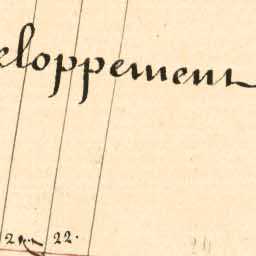 eloppement
22.